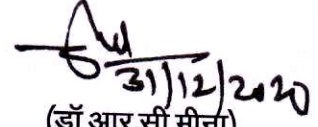 31/12/2020
(डॉ आर सी मीना)